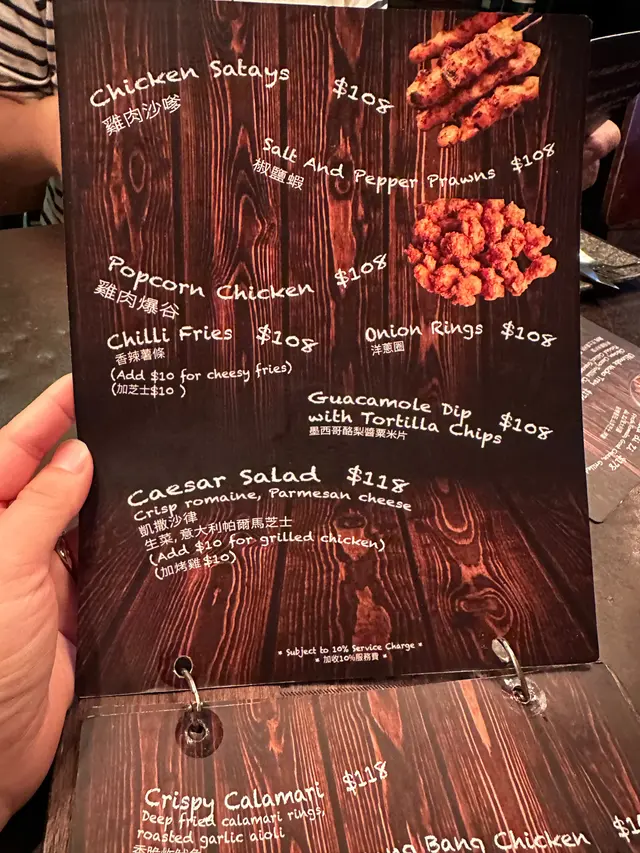 Chicken Satays $108
雞肉沙嗲
Salt And Pepper Prawns $108
椒鹽蝦
Popcorn Chicken $108
雞肉爆谷
Chilli Fries $108
香辣薯條
(Add $10 for cheesy fries)
(加芝士$10 )
Onion Rings $108
洋蔥圈
Guacamole Dip
with Tortilla Chips $108
墨西哥酪梨醬粟米片
Caesar Salad $118
Crisp romaine, Parmesan cheese
凱撒沙律
生菜, 意大利帕爾馬芝士
(Add $10 for grilled chicken)
(加烤雞$10)
* Subject to 10% Service Charge *
* 加收10%服務費 *
Crispy Calamari $118
Deep fried calamari rings,
roasted garlic aioli
Bang Chicken